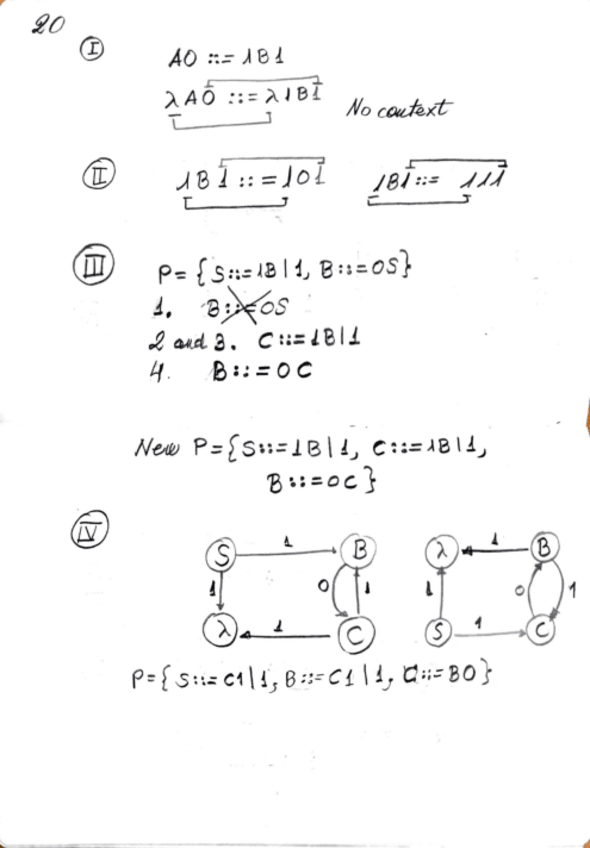 20
I
A0 ::= 1B1
λA0 ::= λ1B1
No context
II
1B1 ::= 101 1B1 ::= 111
III
P= {S::=1B|1, B::=0S}
1. B::=0S
2 and 3. C::=1B|1
4. B::=0C
New P={S::=1B|1, C::=1B|1,
B::=0C}
IV
S 1 B λ 1 B
1 0 1 1 0 1
λ 1 C S 1 C
P={S::=C1|1, B::=C1|1, C::=B0}